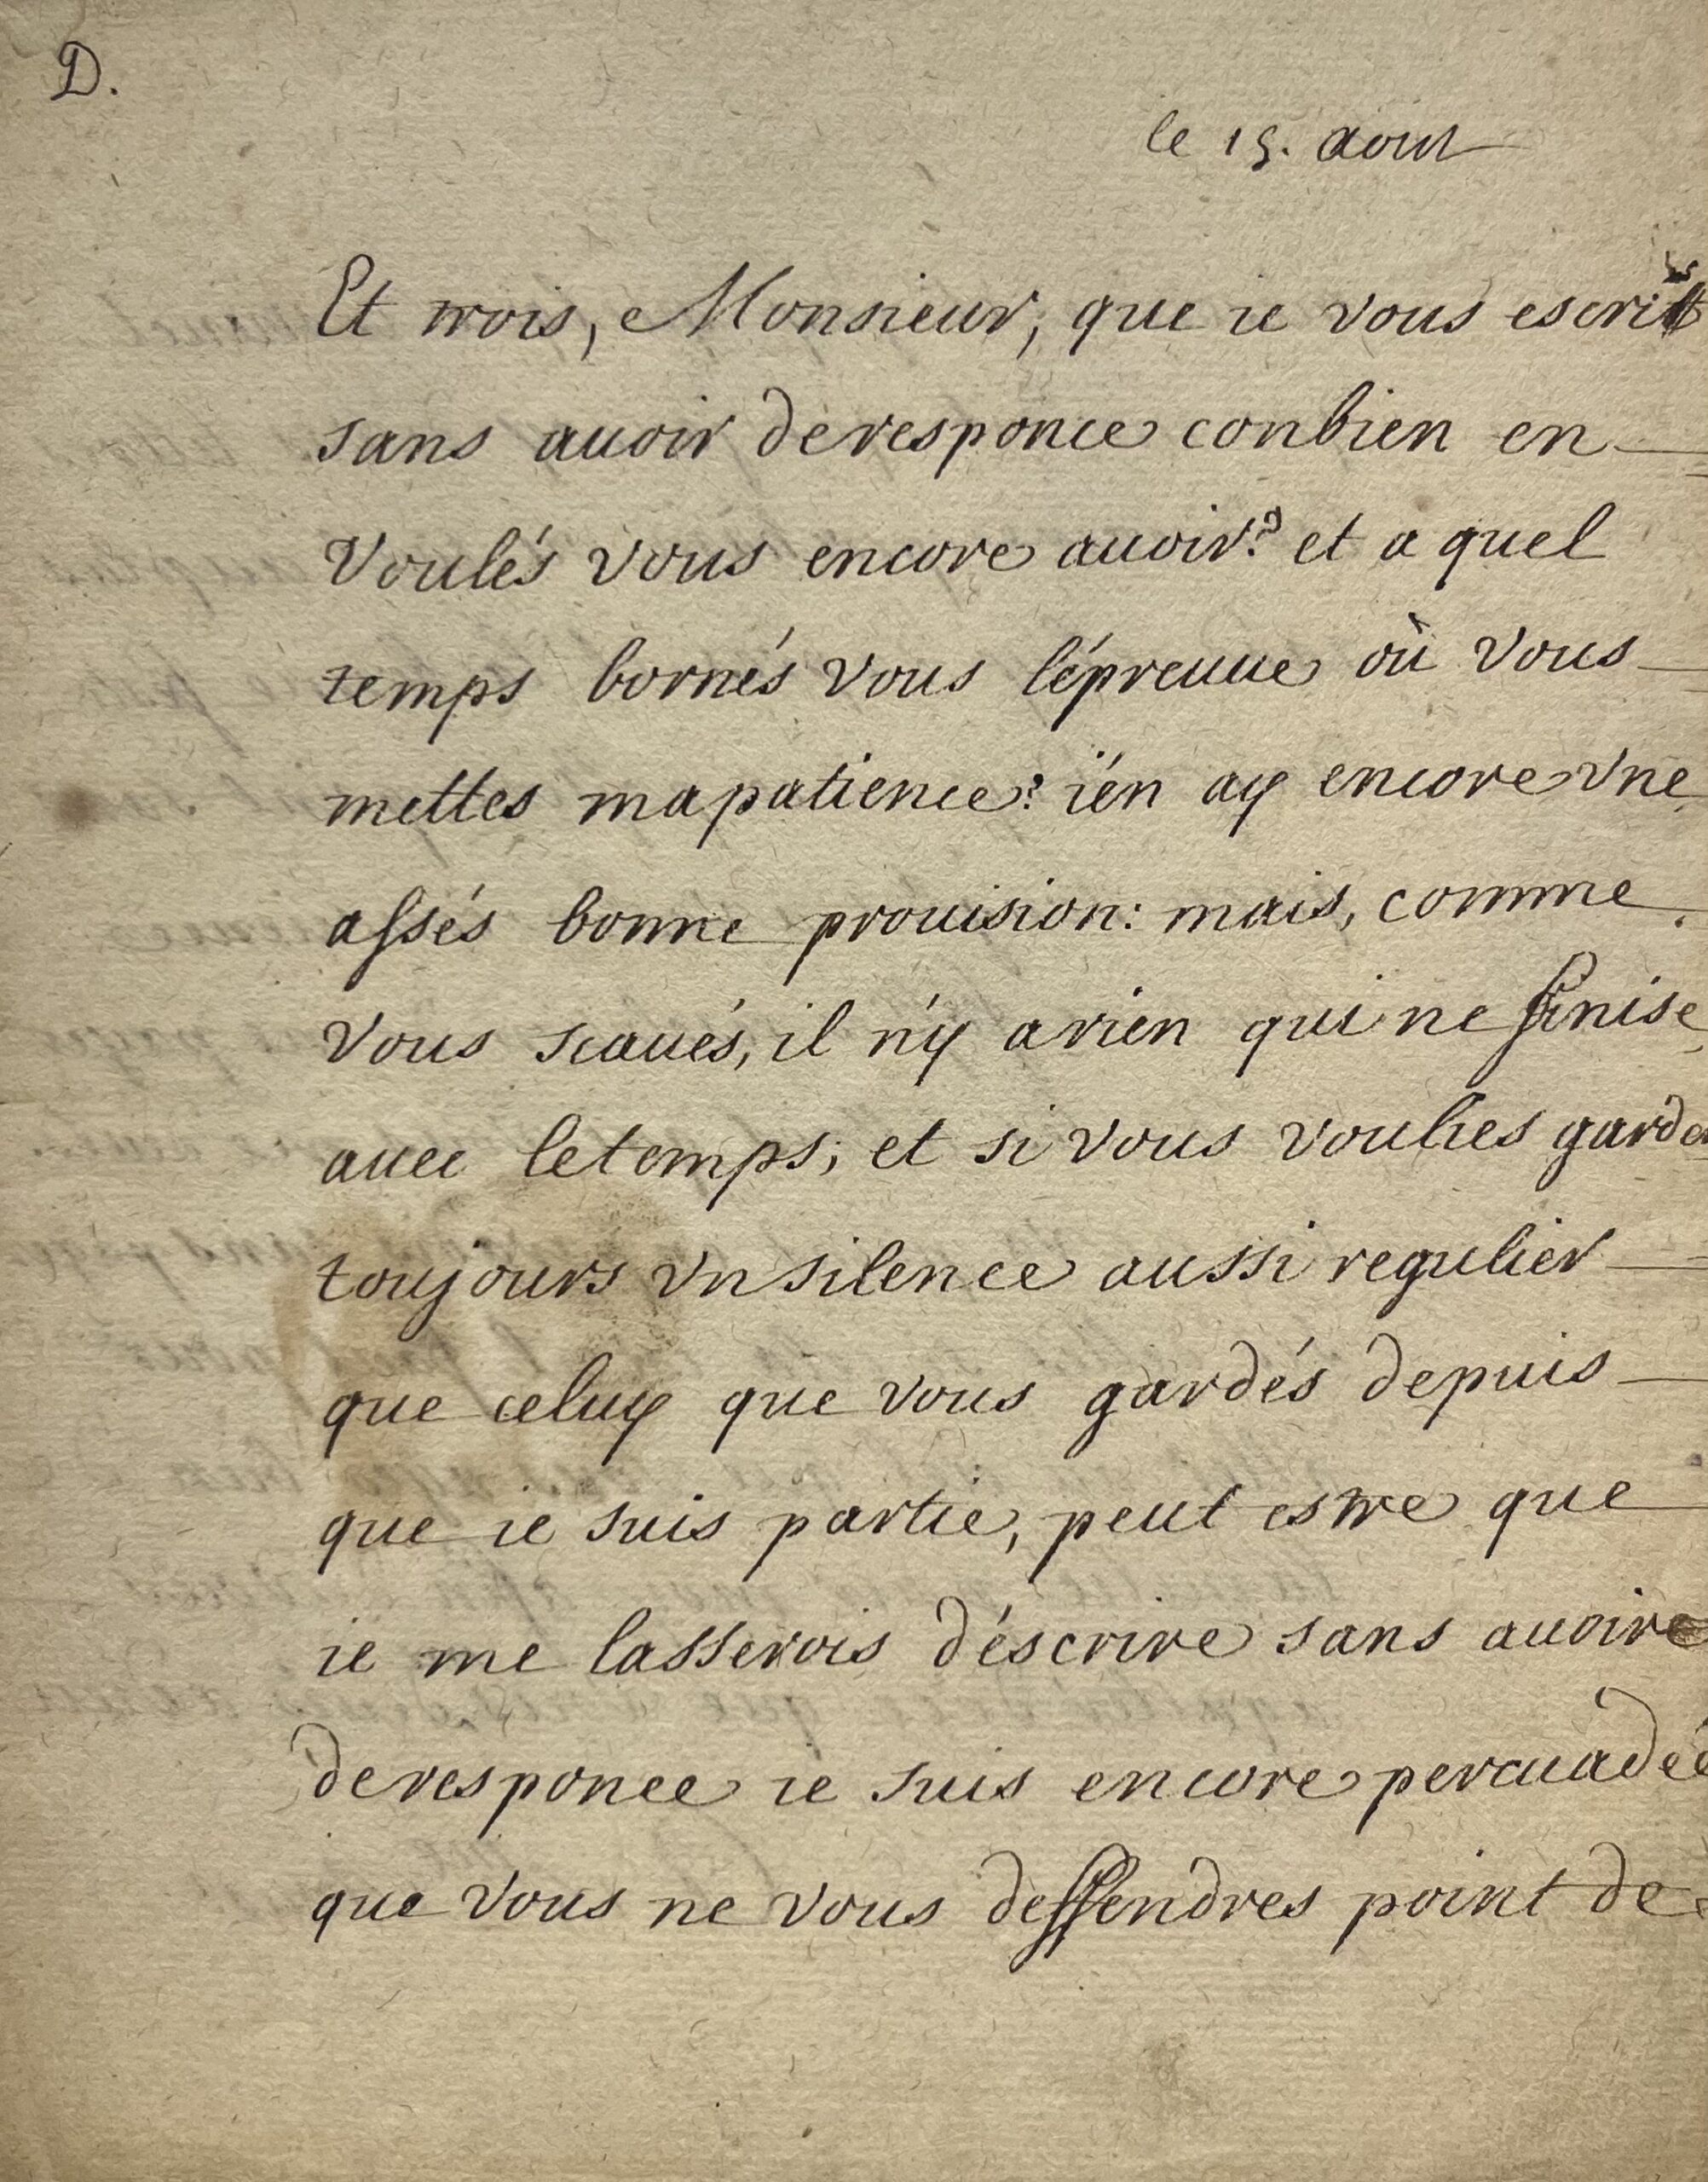 D.
le 15. aout
Et trois, Monsieur, que ie vous escrits
sans auoir de responce conbien en
Voulés vous encore auoir? et a quel
temps bornés vous l'épreuue où vous
mettes ma patience? i'en ay encore vne
assés bonne prouision: mais, comme
vous scaués, il n'y a rien qui ne finise
auec le temps; et si vous voulies garder
toujours vn silence aussi regulier
que celuy que vous gardés depuis
que ie suis partie, peut estre que
ie me lasserois d'éscrire sans auoir
de responce ie suis encore percuadée
que vous ne vous deffendres point de